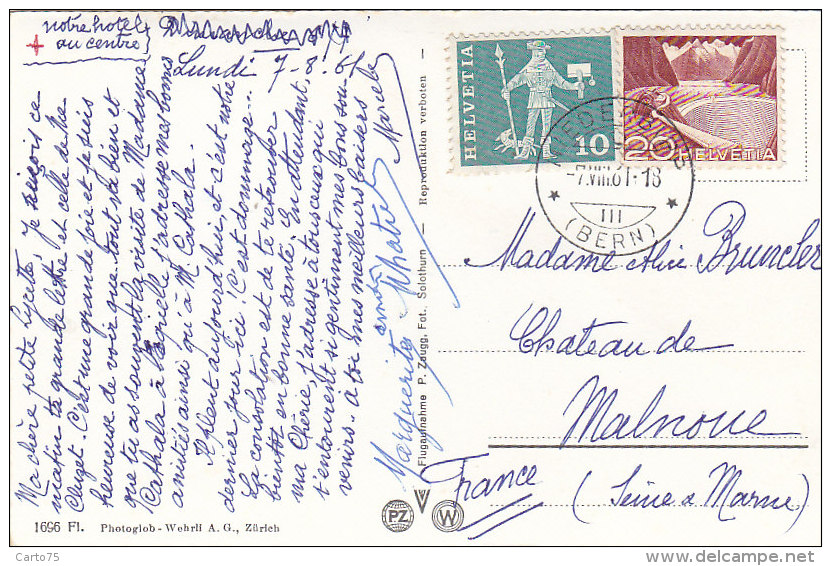 notre hotel
au centre
+
Lundi 7-8.61
Ma chère petite Lycette, Je reçois ce
matin ta grande lettre et celle de Me
Cluzet. C'est une grande joie et je suis
heureuse de voir que tout va bien et
que tu as souvent la visite de Madame
Cathala à laquelle j'adresse mes bonnes
amitiés ainsi qu'à M. Cathala.
Il pleut aujourd'hui et c'est notre
dernier jour ici! C'est dommage...
La consolation est de te retrouver
bientôt en bonne santé. En attendant
ma Chérie, j'adresse à tous ceux qui
t'entourent si gentiment mes bons sou-
venirs. à toi mes meilleurs baisers
Marguerite
amitiés
Flugaufnahme P. Zaugg, Fot., Solothurn — Reproduktion verboten —
1696 Fl. Photoglob-Wehrli A. G., Zürich
PZ
W
HELVETIA
10
20 HELVETIA
-7.VIII.61-18
III
(BERN)
Madame Alice Bruncler
Chateau de
Malnoue
(Seine & Marne)
France
Carto75
www.delcampe.net